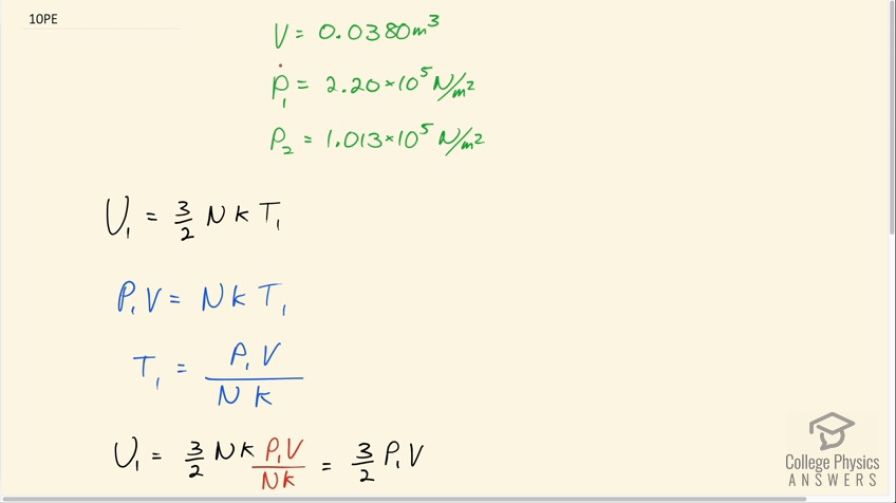 10PE
V = 0.0380 m³
P₁ = 2.20 × 10⁵ N/m²
P₂ = 1.013 × 10⁵ N/m²
U₁ = 3/2 N k T₁
P₁V = N k T₁
T₁ = P₁V / N k
U₁ = 3/2 N k P₁V / N k = 3/2 P₁V
College Physics
ANSWERS